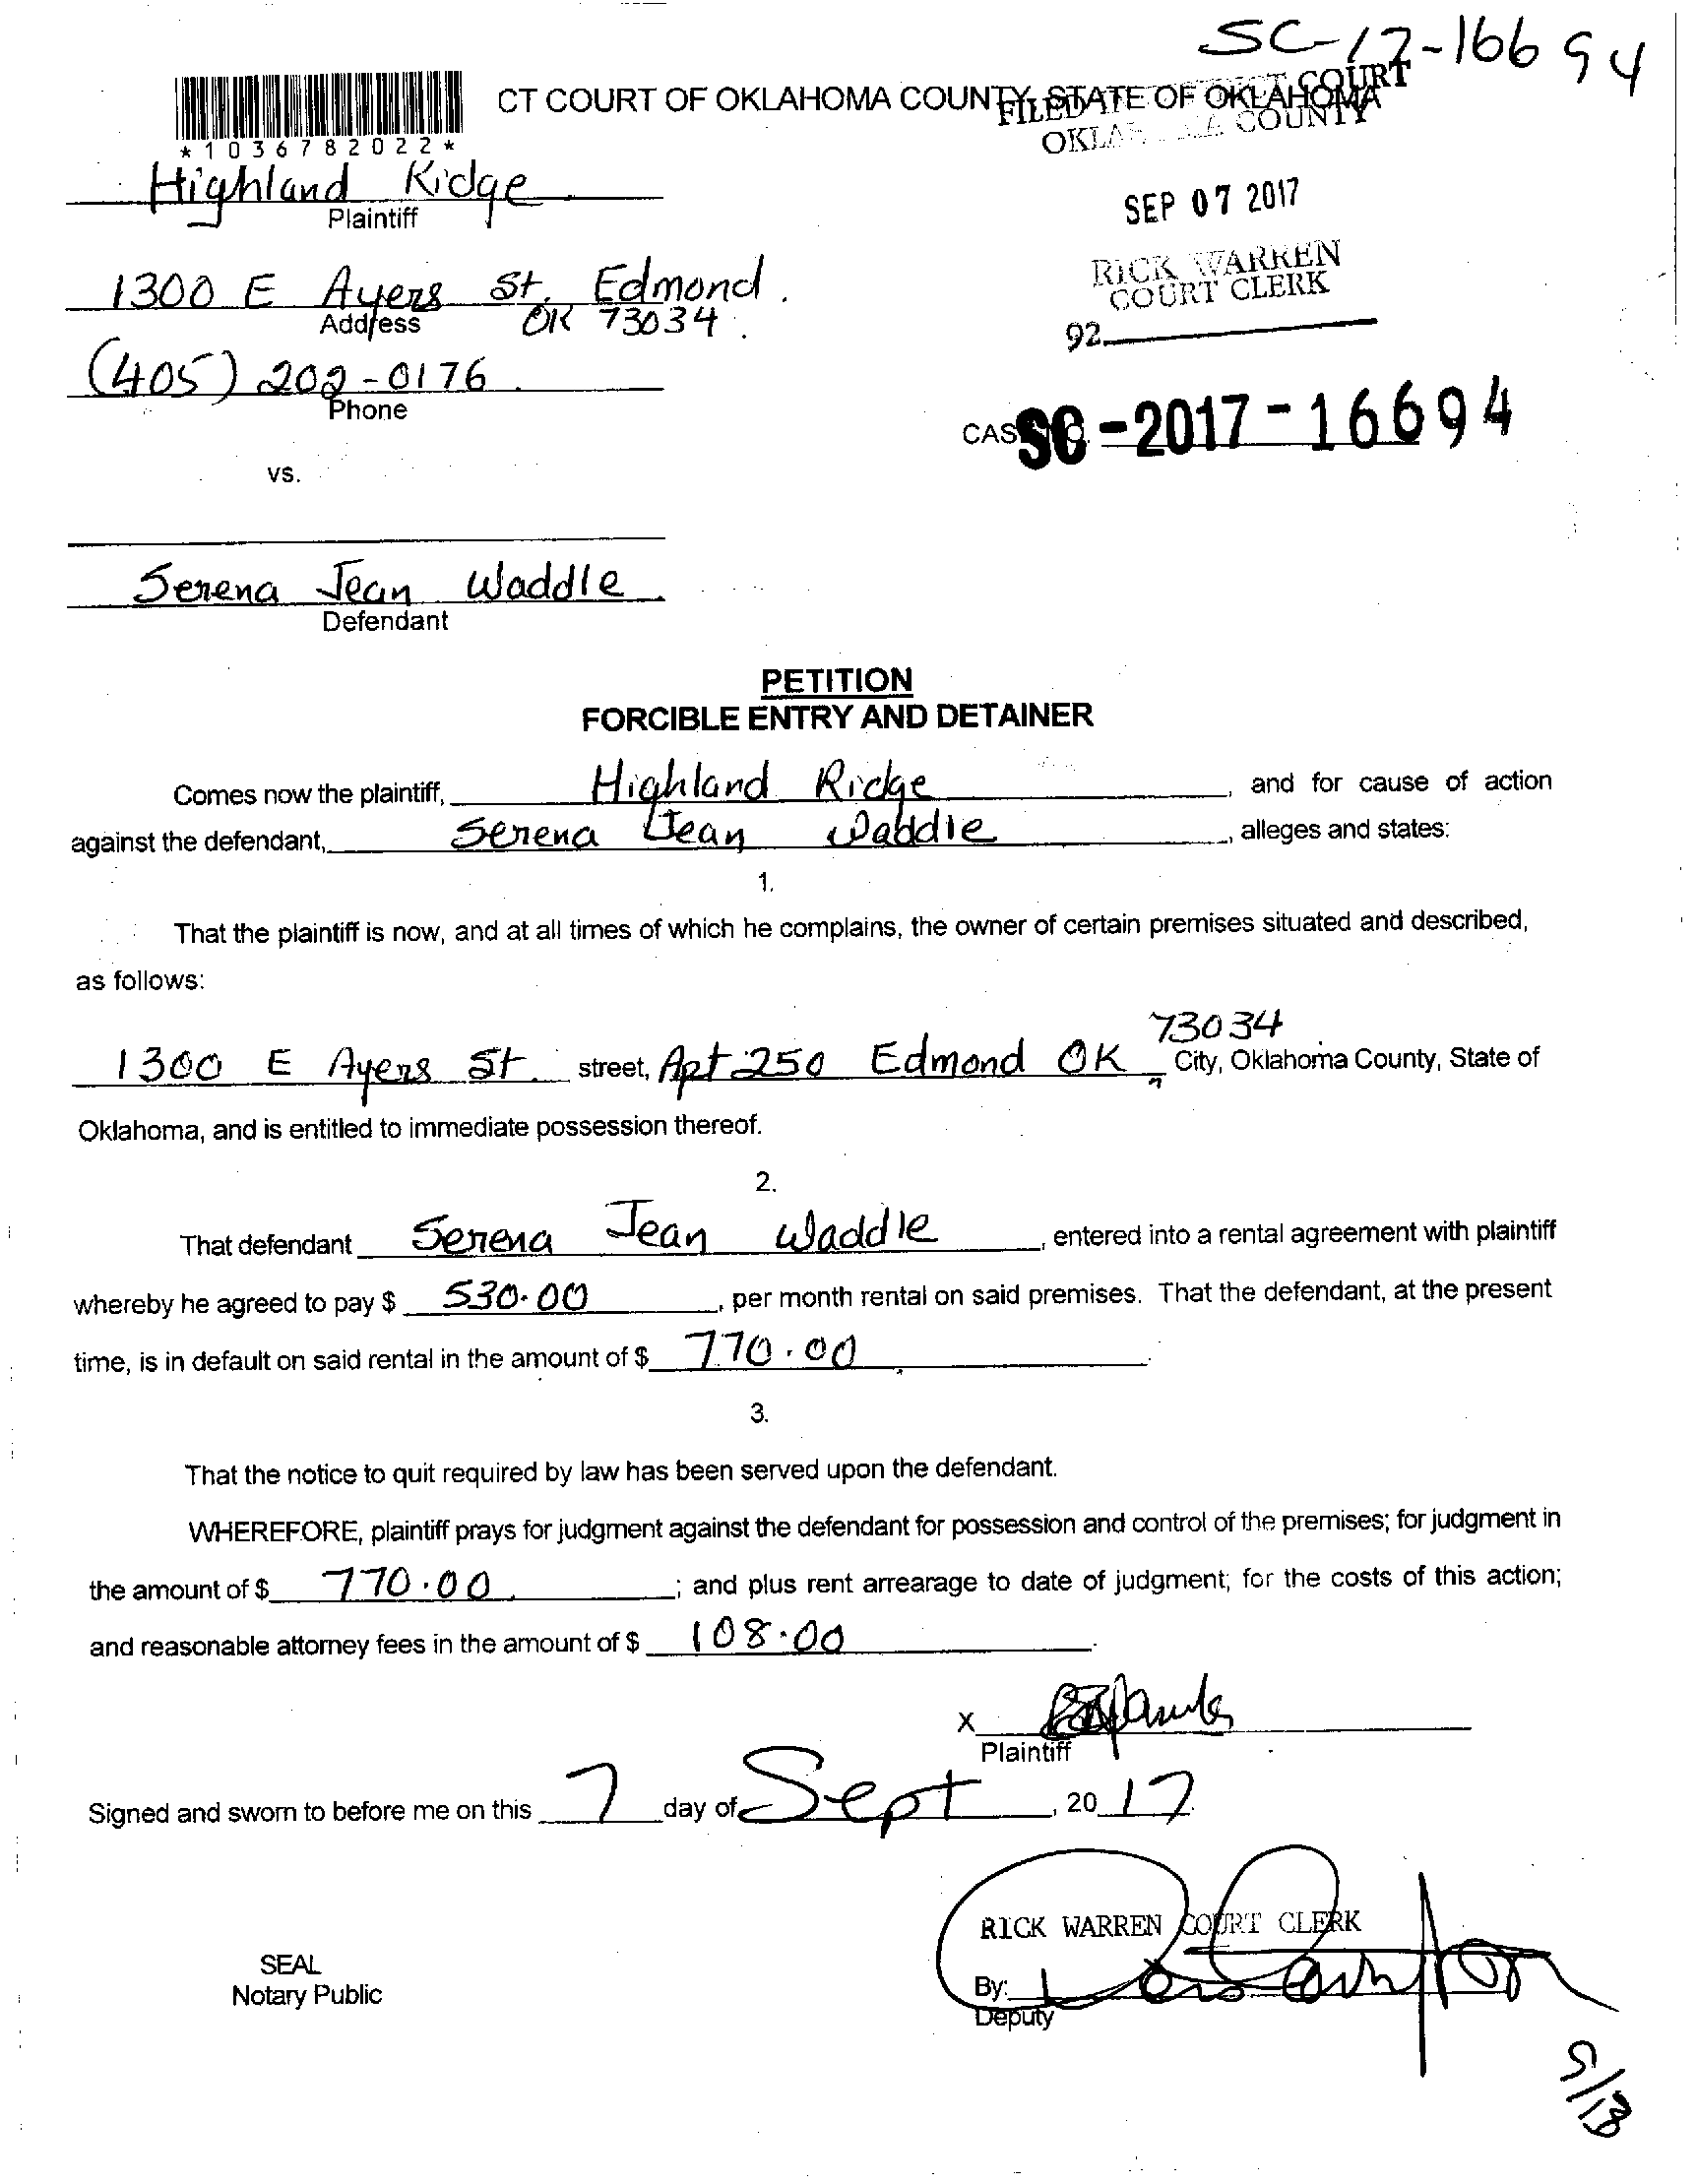 SC-17-16694
CT COURT OF OKLAHOMA COUNTY, STATE OF OKLAHOMA
FILED COURT
COUNTY
*1036782022*
Highland Ridge
Plaintiff
SEP 07 2017
RICK WARREN
COURT CLERK
1300 E Ayers St. Edmond.
Address
OK 73034
92
(405) 202-0176
Phone
SC-2017-16694
vs.
Serena Jean Waddle
Defendant
PETITION
FORCIBLE ENTRY AND DETAINER
Comes now the plaintiff, Highland Ridge, and for cause of action
against the defendant, Serena Jean Waddle, alleges and states:
1.
That the plaintiff is now, and at all times of which he complains, the owner of certain premises situated and described,
as follows:
73034
1300 E Ayers St. street, Apt 250 Edmond OK, City, Oklahoma County, State of
Oklahoma, and is entitled to immediate possession thereof.
2.
That defendant Serena Jean Waddle, entered into a rental agreement with plaintiff
whereby he agreed to pay $ 530.00, per month rental on said premises. That the defendant, at the present
time, is in default on said rental in the amount of $ 770.00
3.
That the notice to quit required by law has been served upon the defendant.
WHEREFORE, plaintiff prays for judgment against the defendant for possession and control of the premises; for judgment in
the amount of $ 770.00; and plus rent arrearage to date of judgment; for the costs of this action;
and reasonable attorney fees in the amount of $ 108.00
X
Plaintiff
Signed and sworn to before me on this 7 day of Sept, 2017
RICK WARREN COURT CLERK
SEAL
Notary Public
By:
Deputy